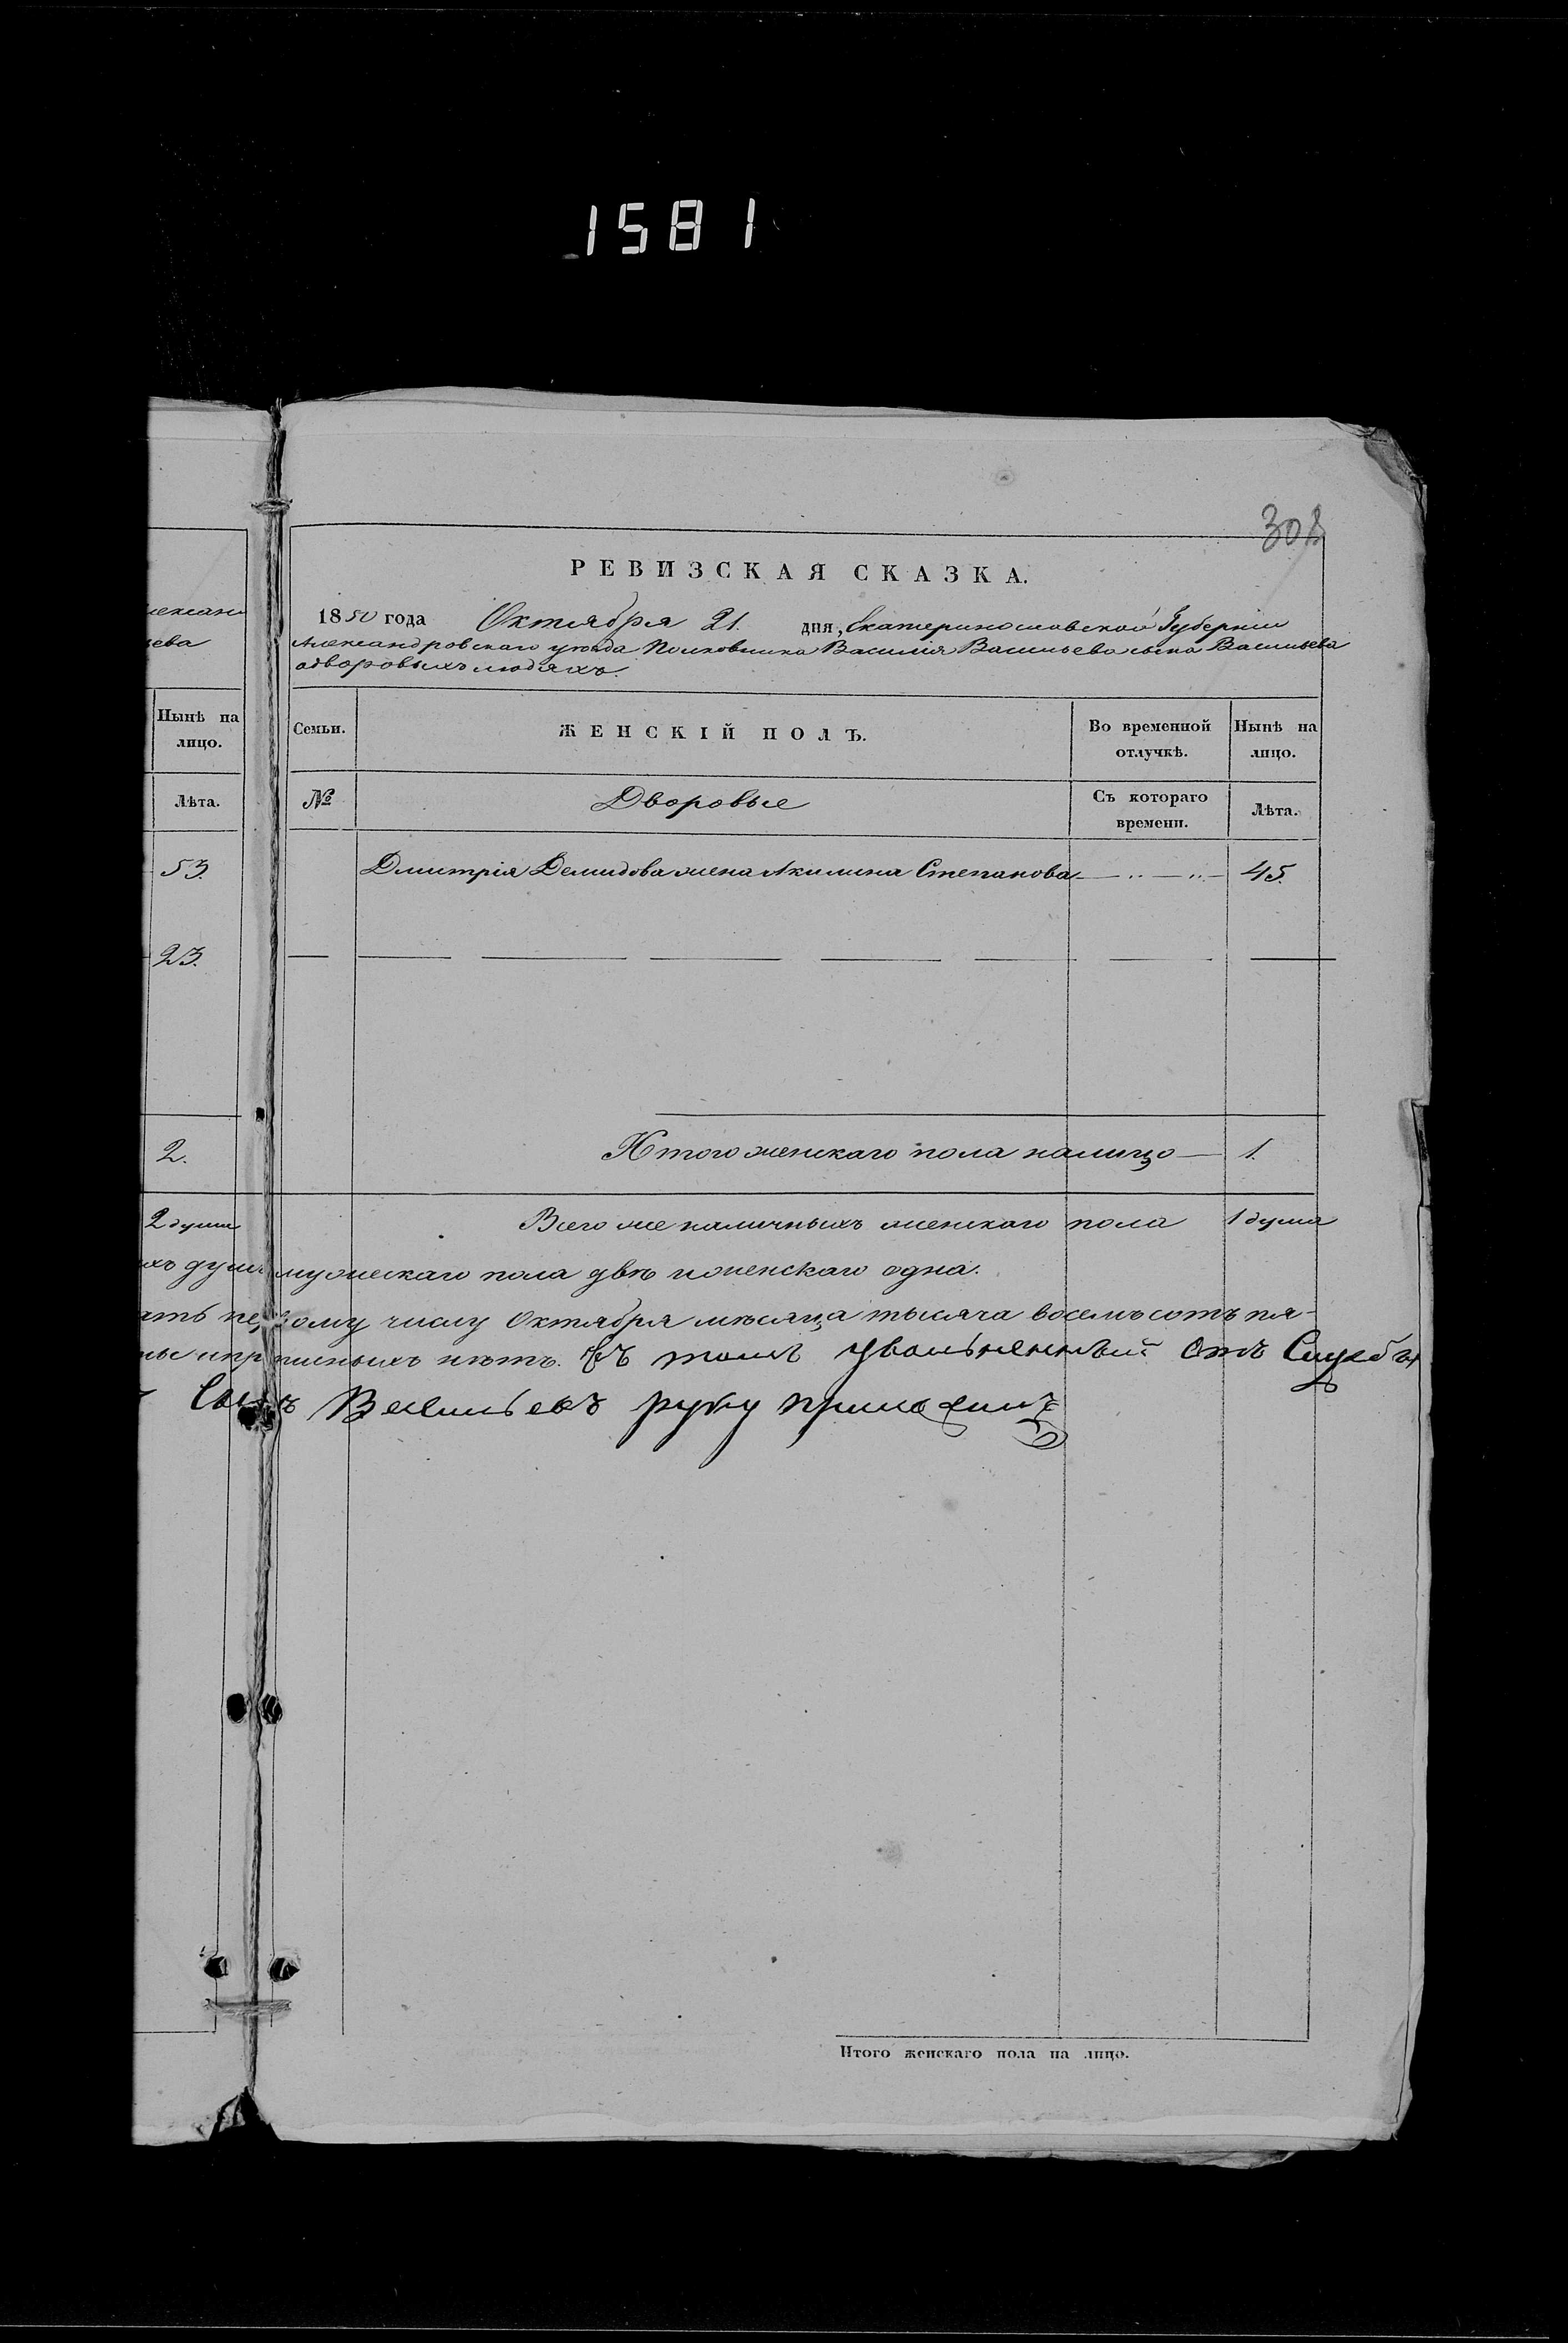 1581
308
РЕВИЗСКАЯ СКАЗКА.
1850 года Октября 21. дня, Екатеринославской Губернии
Александровскаго уѣзда Полковника Василія Васильева сына Васильева
одворовыхъ людяхъ.
ева
Нынѣ на лицо.
Семьи.
ЖЕНСКІЙ ПОЛЪ.
Во временной отлучкѣ.
Нынѣ на лицо.
Лѣта.
№
Дворовые
Съ котораго времени.
Лѣта.
53.
Дмитрія Демидова жена Акилина Степанова 45.
23.
2.
Итого женскаго пола налицо 1.
2 души
Всего же наличныхъ женскаго пола 1 душа
хъ душъ мужескаго пола двѣ и женскаго одна.
ать первому числу Октября мѣсяца тысяча восемъ сотъ пя-
писныхъ нѣтъ. Въ томъ уволъненный Отъ Службы
Сынъ Васильевъ руку приложилъ
Итого женскаго пола на лицо.